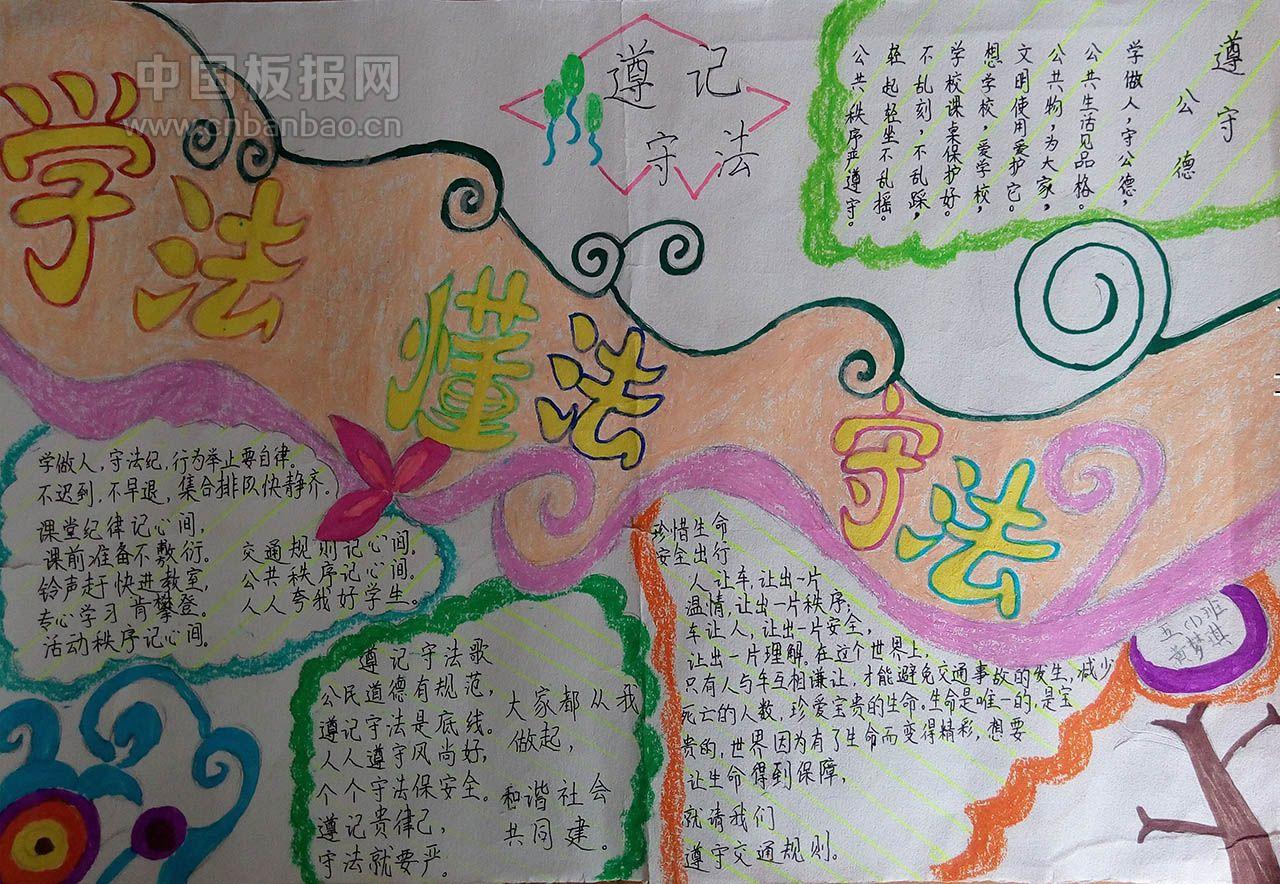 中国板报网
www.cnbanbao.cn
学法
懂法
守法
遵记
守法
遵守
公德
学做人,守公德,
公共生活见品格。
公共物,为大家,
文明使用爱护它。
想学校,爱学校,
学校课桌保护好。
不乱刻,不乱踩,
轻起轻坐不乱摇。
公共秩序严遵守。
学做人,守法纪,行为举止要自律。
不迟到,不早退,集合排队快静齐。
课堂纪律记心间,
课前准备不敷衍。
铃声赶快进教室,
专心学习肯攀登。
活动秩序记心间。
交通规则记心间。
公共秩序记心间。
人人夸我好学生。
遵记守法歌
公民道德有规范,
遵记守法是底线。
人人遵守风尚好,
个个守法保安全。
遵记贵律己,
守法就要严。
大家都从我
做起,
和谐社会
共同建。
珍惜生命
安全出行
人让车,让出一片
温情,让出一片秩序;
车让人,让出一片安全,
让出一片理解。在这个世界上,
只有人与车互相谦让,才能避免交通事故的发生,减少
死亡的人数,珍爱宝贵的生命。生命是唯一的,是宝
贵的,世界因为有了生命而变得精彩,想要
让生命得到保障,
就请我们
遵守交通规则。
五(1)班
梦琪